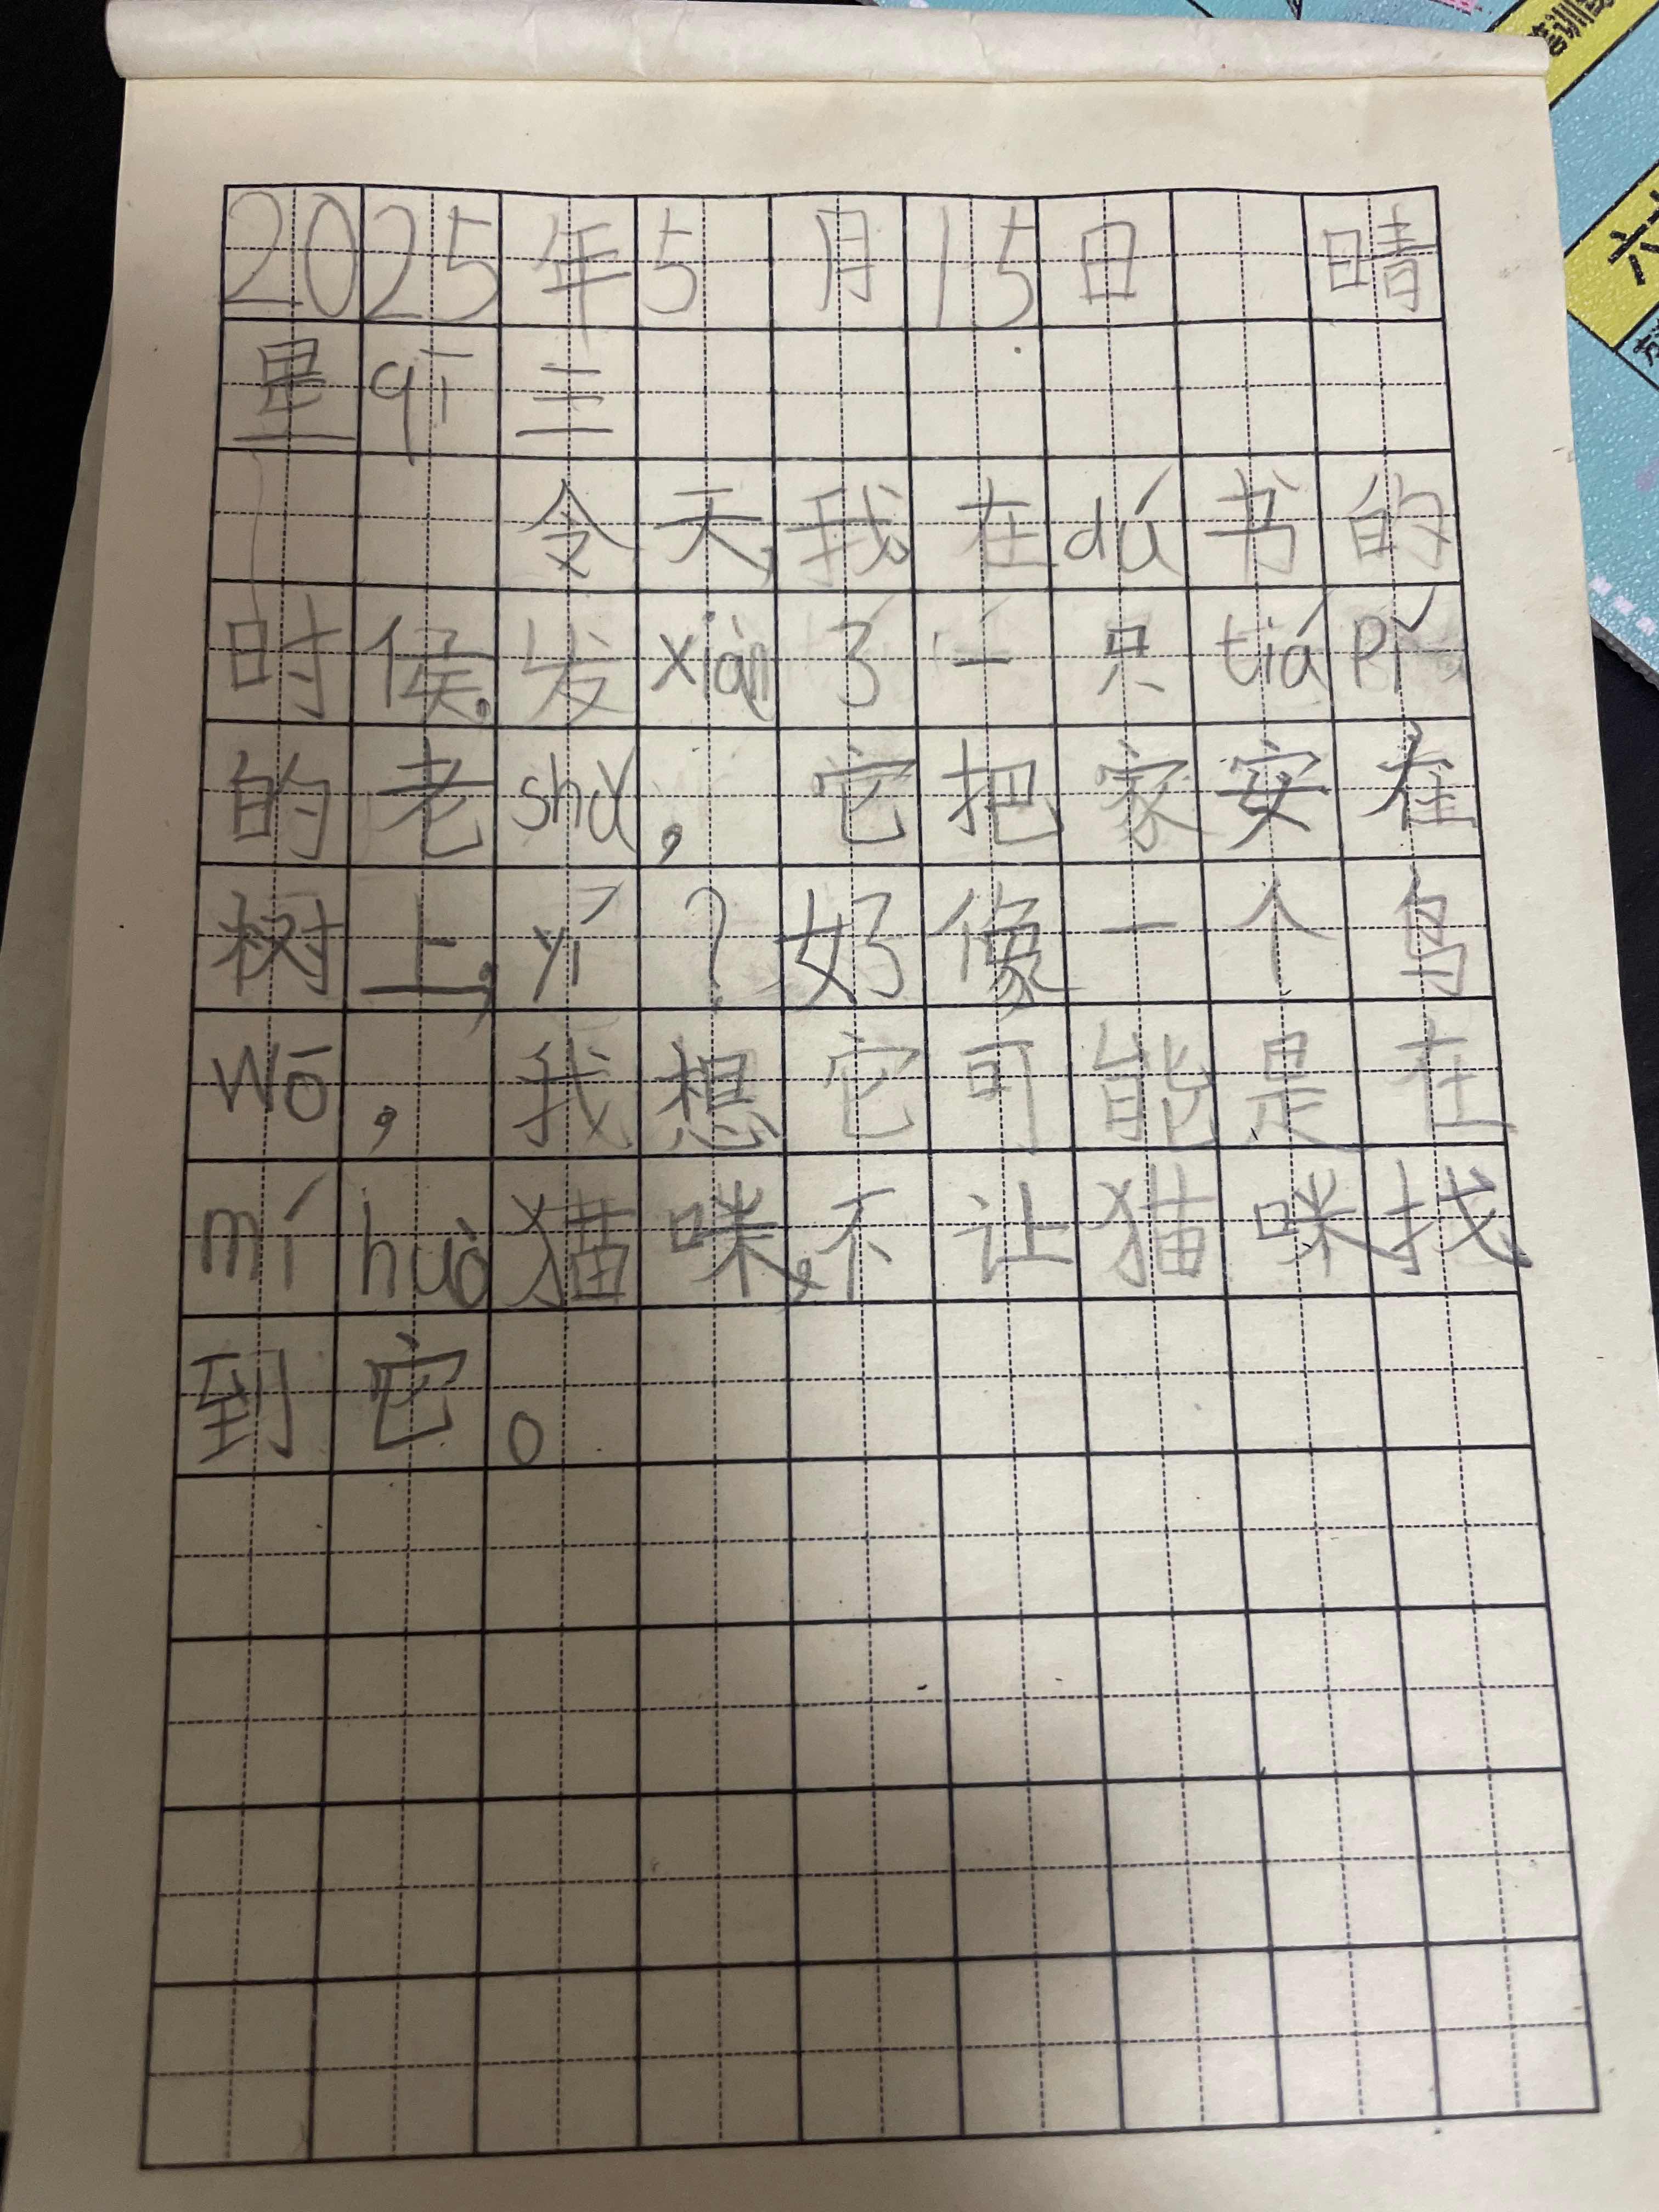 2025年5月15日 晴
星qī三
令天,我在dú书的
时候,发xiàn了一只tiápǐ
的老shǔ,它把家安在
树上,yí?好像一个鸟
wō,我想它可能是在
míhuò猫咪,不让猫咪找
到它。
六